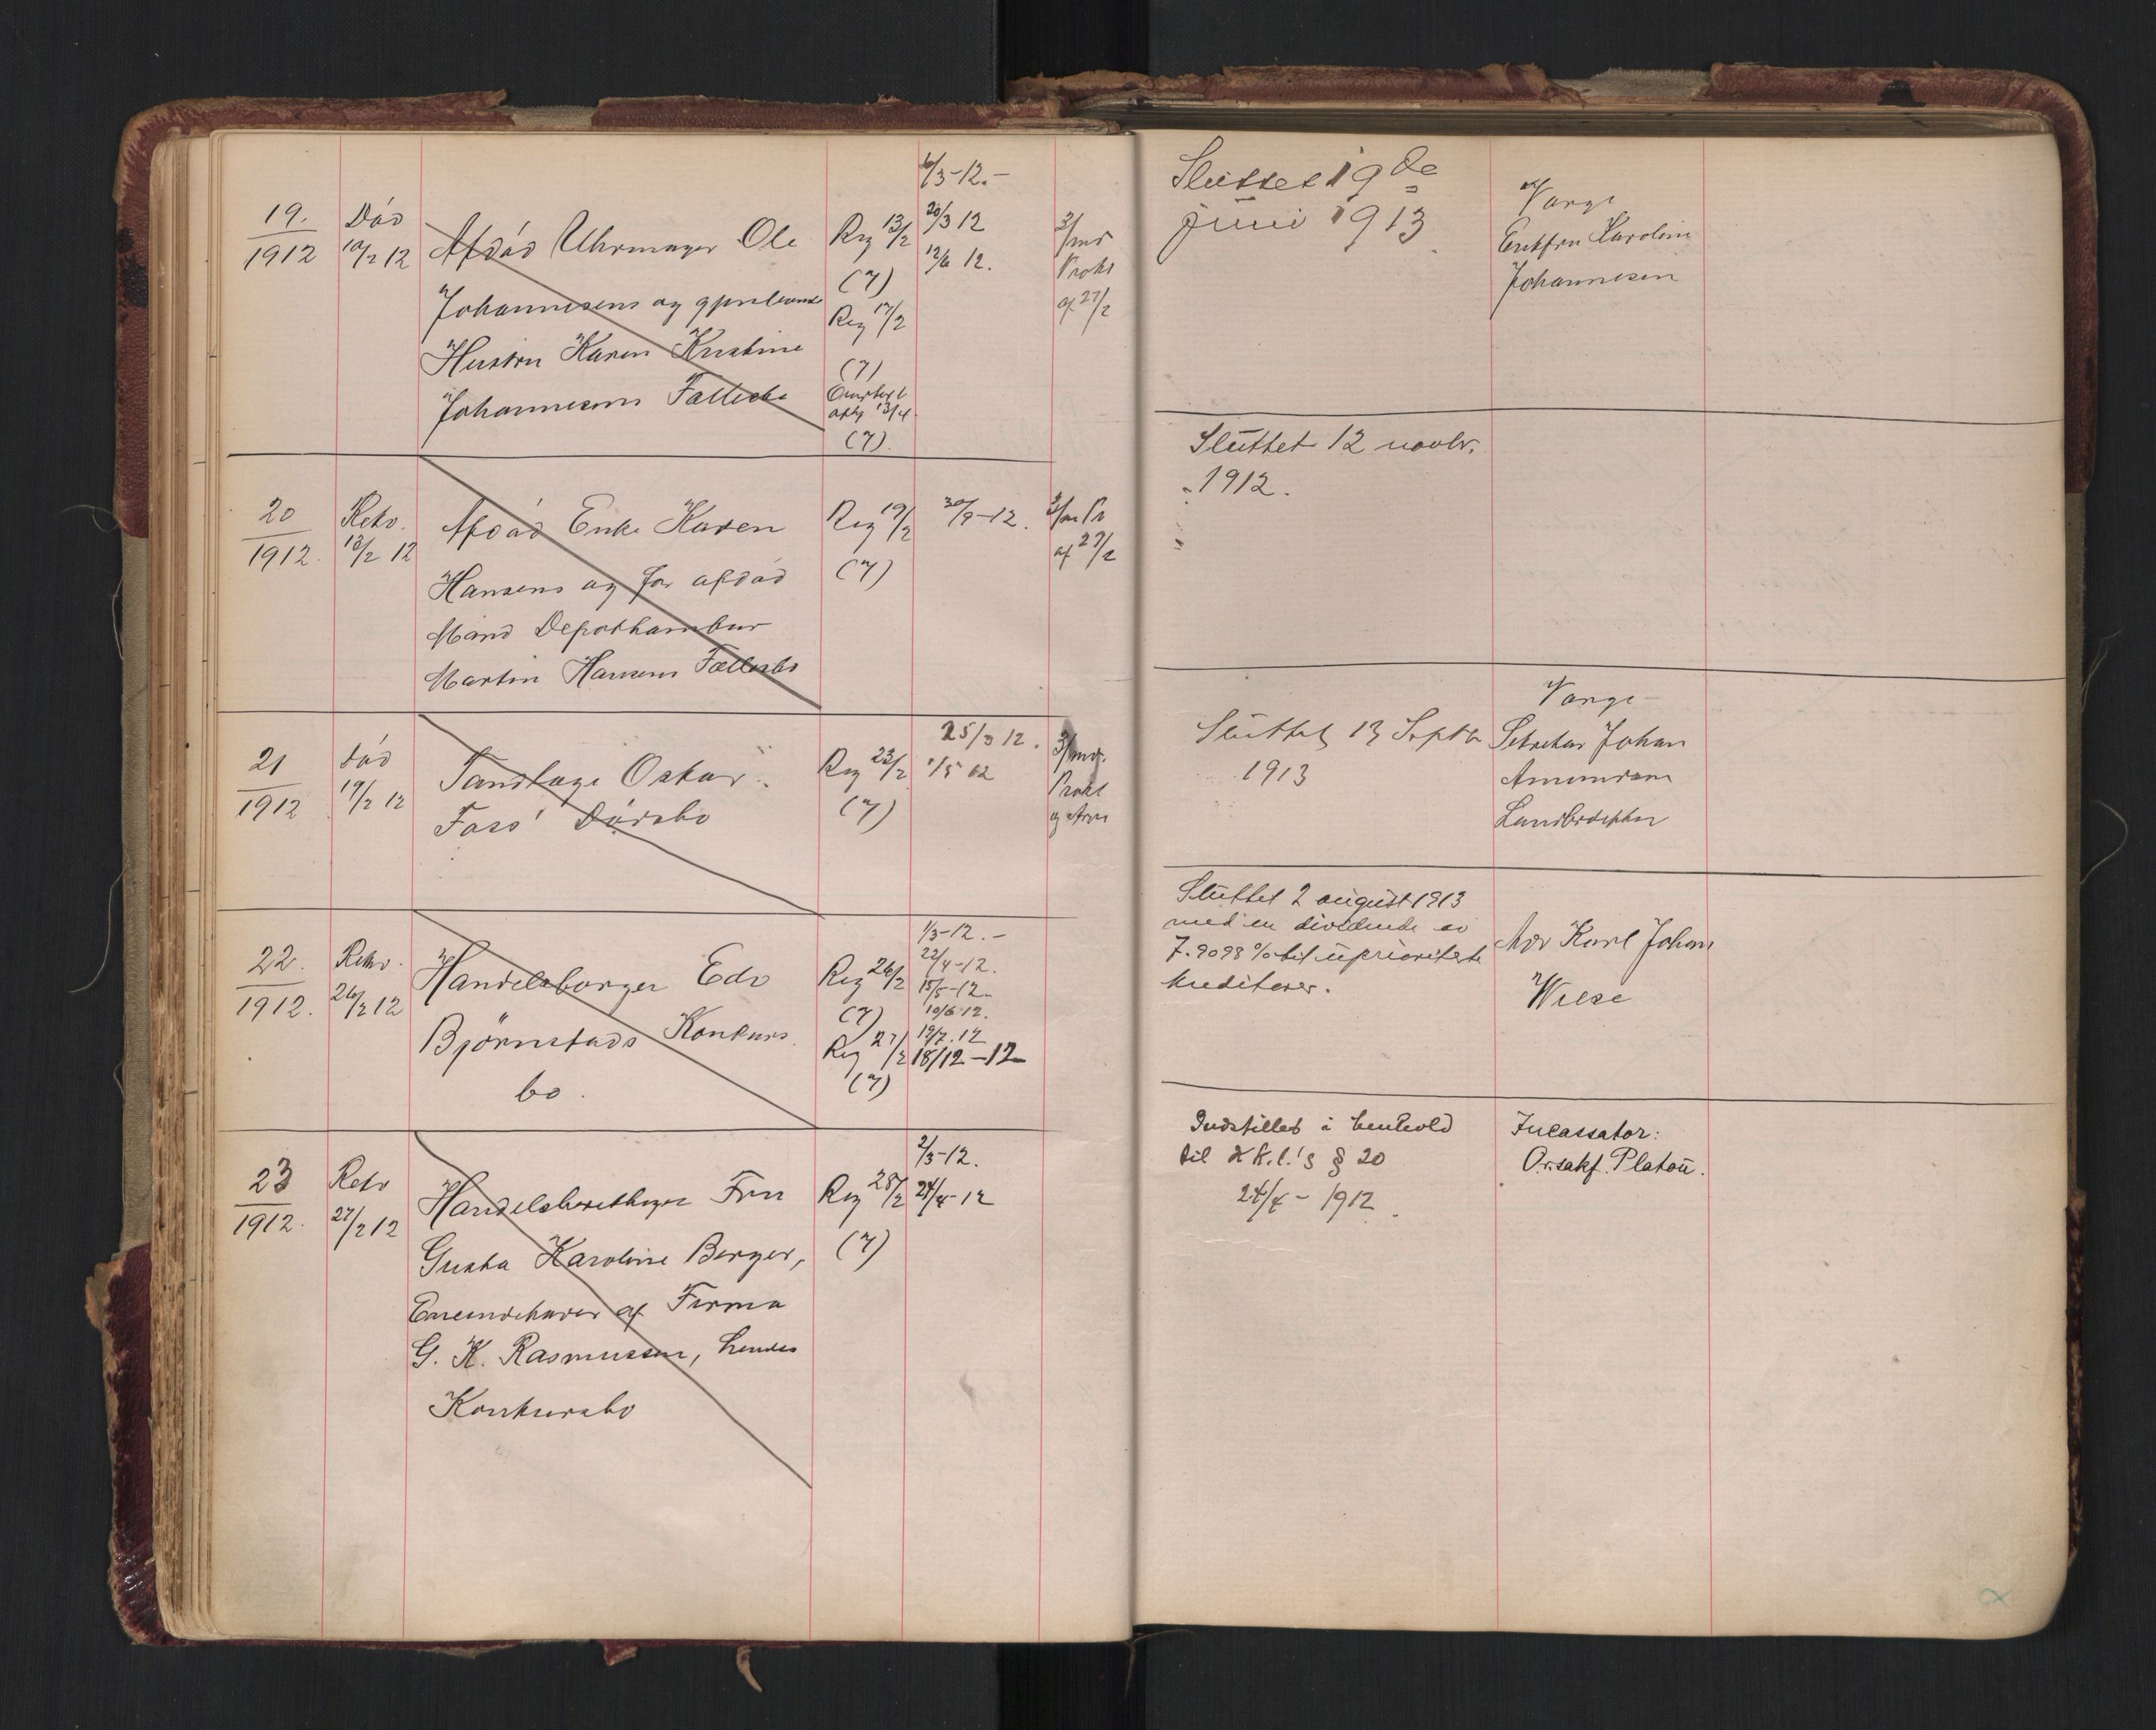 19.
1912
Död
10/2 12
Afdöd Uhrmager Ole
Johannesens og gjenlevende
Hustru Karen Kristine
Johannesens Fællesbo
Reg 13/2
(7)
Reg 17/2
(7)
13/4
(7).
6/3-12.-
20/3 12
12/6 12.
3/mdr
Prokl
af 27/2
Sluttet 19de
juni 1913
Værge
Enkefru Karoline
Johannesen
20
1912.
Rekv.
13/2 12
Afdöd Enke Karen
Hansens og før afdöd
Mand Depotharbur
Martin Hansens Fællesbo
Reg 19/2
(7)
30/9-12.
3/m Pr
af 27/2
Sluttet 12 novbr.
1912.
21
1912
död
19/2 12
Tandlæge Oskar
Foss' Dödsbo
Reg 23/2
(7)
25/3 12.
1/5 12
3/mdr.
Prokl
Sluttet 13 Septbr
1913
Værge
Sekretær Johan
Amundsen
Landbrdeptm
22.
1912.
Rekv.
26/2 12
Handelsborger Edv
Björnstads Konkurs
bo.
Reg 26/2
(7)
Reg 27/2
(7)
1/3-12.-
22/4-12.
15/5-12-
10/6-12.
19/7.12
18/12-12
Sluttet 2 august 1913
med en dividende av
7.9098 % til uprioriterte
kreditorer.
Adv Karl Johan
Wiese
23
1912.
Rekv
27/2 12
Handelsberettigede Fru
Gusta Karoline Berger,
Eneindehaver af Firma
G. K. Rasmussen, hendes
Konkursbo
Reg 28/2
(7)
2/3-12.
24/4-12
Indstillet i henhold
til K.k.l.'s § 20
24/4-1912.
Incassator:
O.r.sakf. Platou.